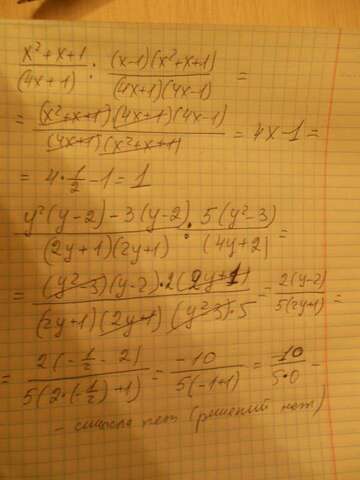 x²+x+1/(4x+1) : (x-1)(x²+x+1)/(4x+1)(4x-1) =
= (x²+x+1)(4x+1)(4x-1)/(4x+1)(x²+x+1) = 4x-1 =
= 4·1/2-1=1
y²(y-2)-3(y-2)/(2y+1)(2y+1) : 5(y²-3)/(4y+2) =
= (y²-3)(y-2)·2(2y+1)/(2y+1)(2y+1)(y²-3)·5 = 2(y-2)/5(2y+1) =
= 2(-1/2-2)/5(2·(-1/2)+1) = -10/5(-1+1) = 10/5·0 -
- смысла нет (решений нет)